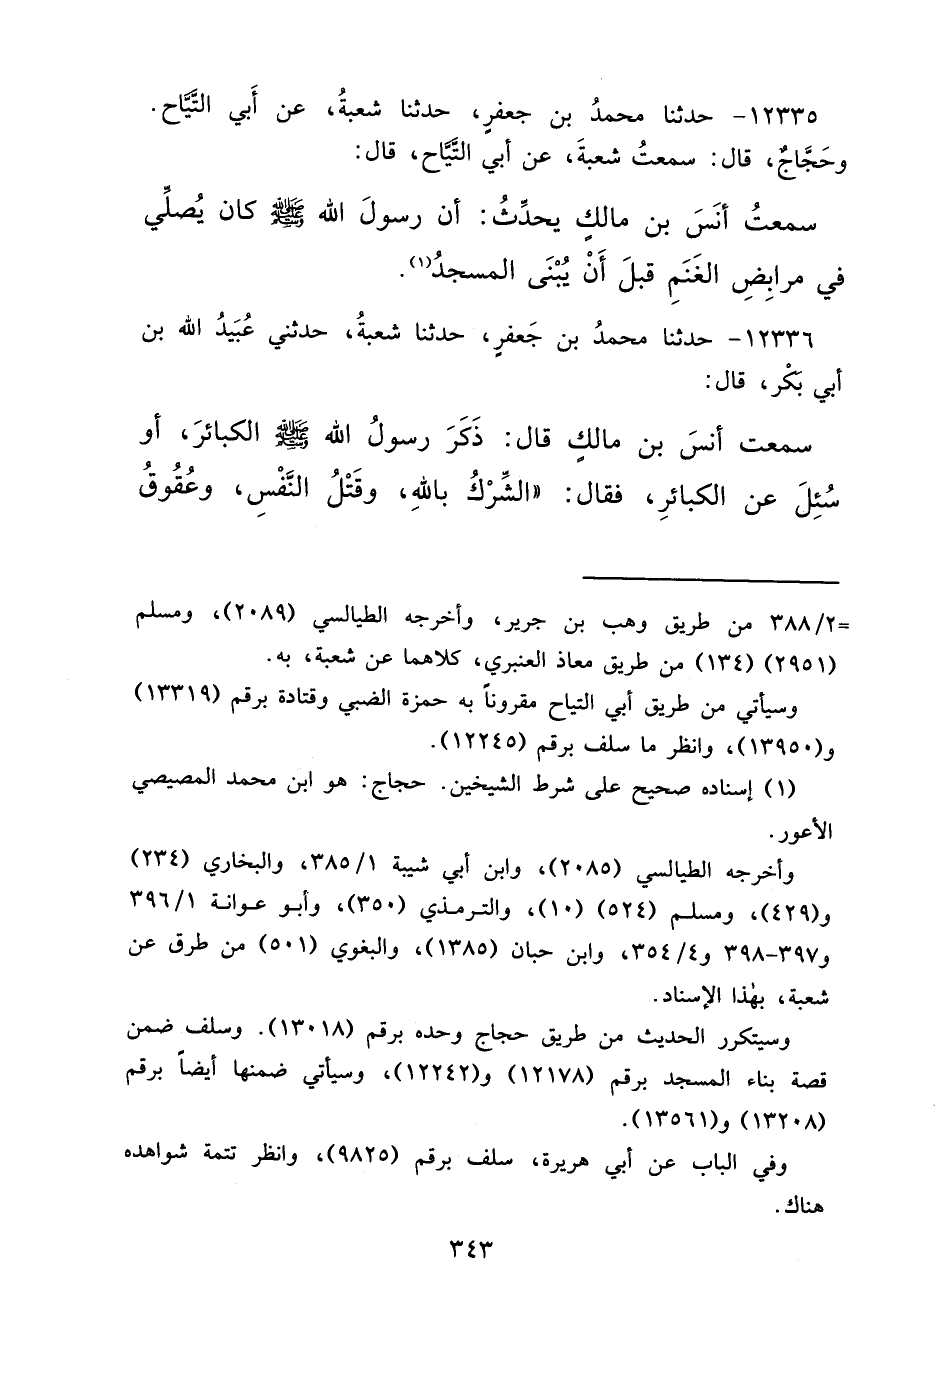 ١٢٣٣٥- حدثنا محمدُ بن جعفرٍ، حدثنا شعبةُ، عن أَبي التَّيَّاح.
وحَجَّاجٌ، قال: سمعتُ شعبةَ، عن أبي التَّيَّاح، قال:
سمعتُ أنَسَ بن مالكٍ يحدِّثُ: أن رسولَ الله ﷺ كان يُصلِّي
في مرابِضِ الغَنَمِ قبلَ أَنْ يُبْنَى المسجدُ(١).
١٢٣٣٦- حدثنا محمدُ بن جَعفرٍ، حدثنا شعبةُ، حدثني عُبَيدُ الله بن
أبي بَكْر، قال:
سمعت أنسَ بن مالكٍ قال: ذَكَرَ رسولُ الله ﷺ الكبائرَ، أو
سُئِلَ عن الكبائرِ، فقال: «الشِّرْكُ باللهِ، وقَتْلُ النَّفْسِ، وعُقُوقُ
=٣٨٨/٢ من طريق وهب بن جرير، وأخرجه الطيالسي (٢٠٨٩)، ومسلم
(٢٩٥١) (١٣٤) من طريق معاذ العنبري، كلاهما عن شعبة، به.
وسيأتي من طريق أبي التياح مقروناً به حمزة الضبي وقتادة برقم (١٣٣١٩)
و(١٣٩٥٠)، وانظر ما سلف برقم (١٢٢٤٥).
(١) إسناده صحيح على شرط الشيخين. حجاج: هو ابن محمد المصيصي
الأعور.
وأخرجه الطيالسي (٢٠٨٥)، وابن أبي شيبة ٣٨٥/١، والبخاري (٢٣٤)
و(٤٢٩)، ومسلم (٥٢٤) (١٠)، والترمذي (٣٥٠)، وأبو عوانة ٣٩٦/١
و٣٩٧-٣٩٨ و٣٥٤/٤، وابن حبان (١٣٨٥)، والبغوي (٥٠١) من طرق عن
شعبة، بهٰذا الإسناد.
وسيتكرر الحديث من طريق حجاج وحده برقم (١٣٠١٨). وسلف ضمن
قصة بناء المسجد برقم (١٢١٧٨) و(١٢٢٤٢)، وسيأتي ضمنها أيضاً برقم
(١٣٢٠٨) و(١٣٥٦١).
وفي الباب عن أبي هريرة، سلف برقم (٩٨٢٥)، وانظر تتمة شواهده
هناك.
٣٤٣